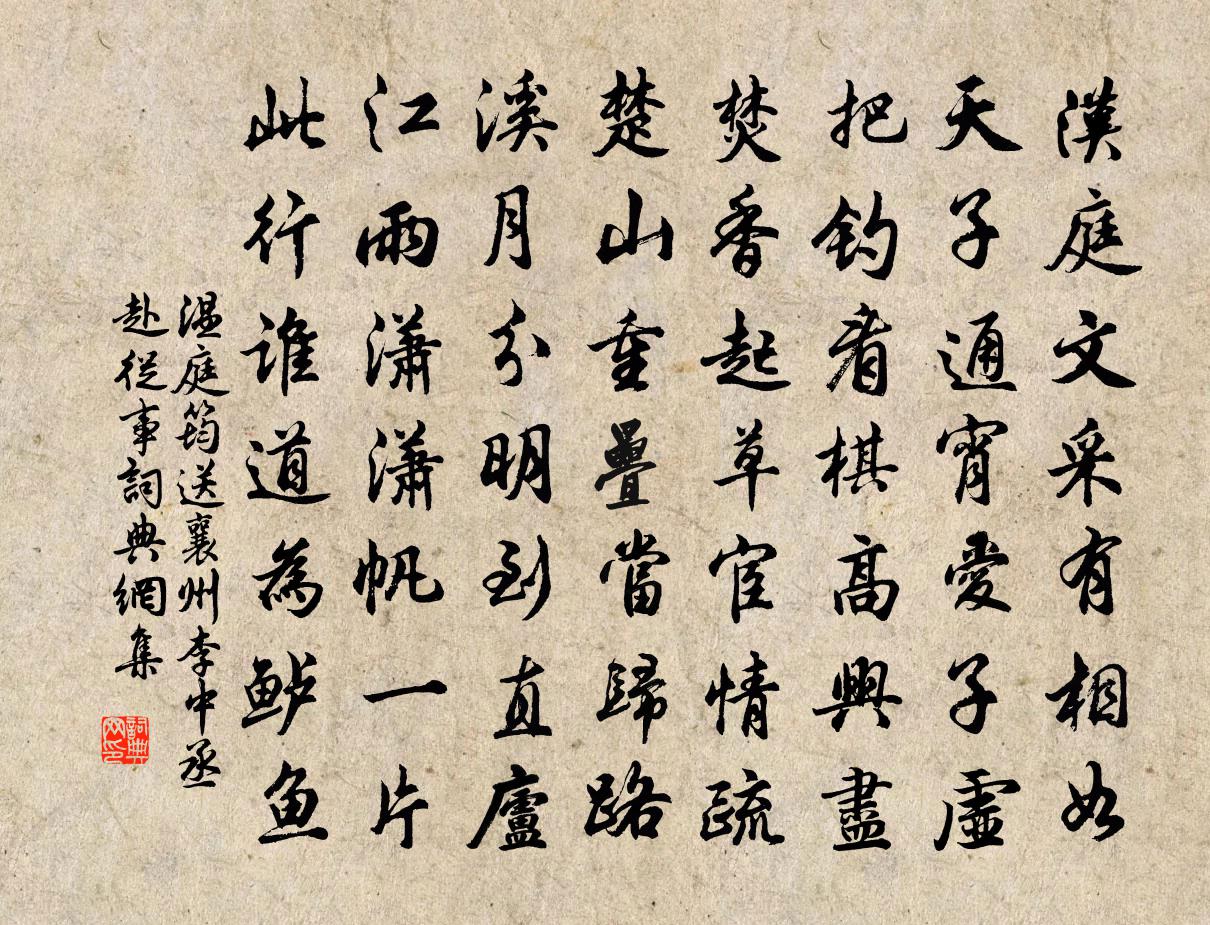 漢庭文采有相如
天子通宵愛子虛
把钓看棋高興盡
焚香起草宦情疏
楚山重疊當歸路
溪月分明到直廬
江雨瀟瀟帆一片
此行誰道為鲈鱼
温庭筠送襄州李中丞
赴從事詞典網集
詞典
网印